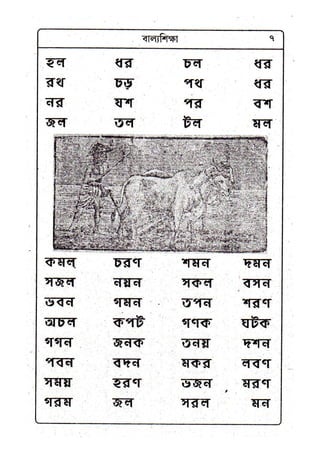 বাল্যশিক্ষা ৭
হল ধর চল ধর
রথ চড় পথ ধর
নর যশ পর বশ
জল তল টল মল
কমল্ চরণ শমন দমন
সজল নয়ন সকল বসন
ভবন গমন তপন শরণ
অচল কপট গণক ঘটক
গগন জনক তনয় দশন
পবন বদন মকর লবণ
সময় হরণ ভজন মরণ
গরম জল সরল মন